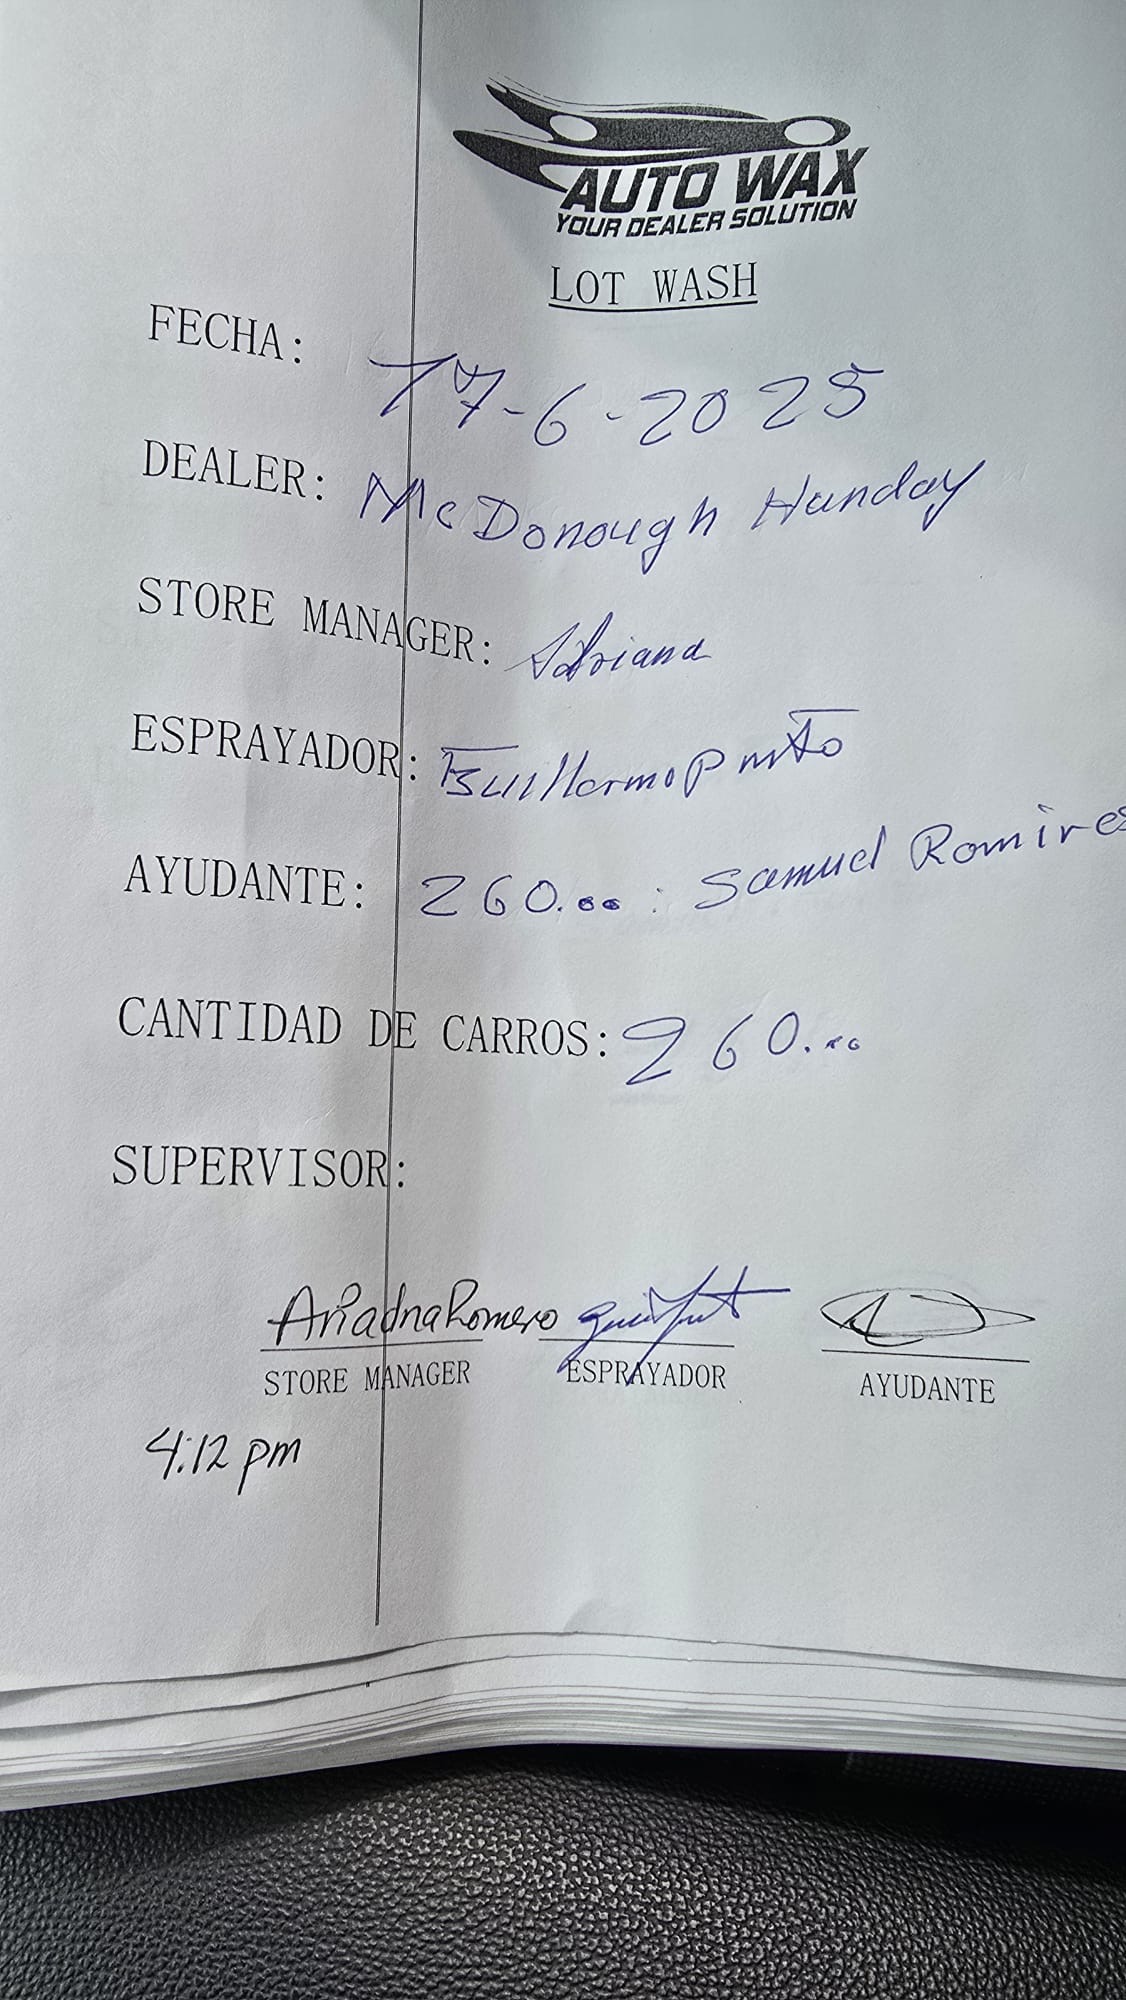 AUTO WAX
YOUR DEALER SOLUTION
LOT WASH
FECHA: 17-6-2025
DEALER: McDonough Hunday
STORE MANAGER: Adriana
ESPRAYADOR: Guillermo
AYUDANTE: 260.00 : Samuel Ramires
CANTIDAD DE CARROS: 260.00
SUPERVISOR:
Ariadna Romero
STORE MANAGER ESPRAYADOR AYUDANTE
4:12 pm